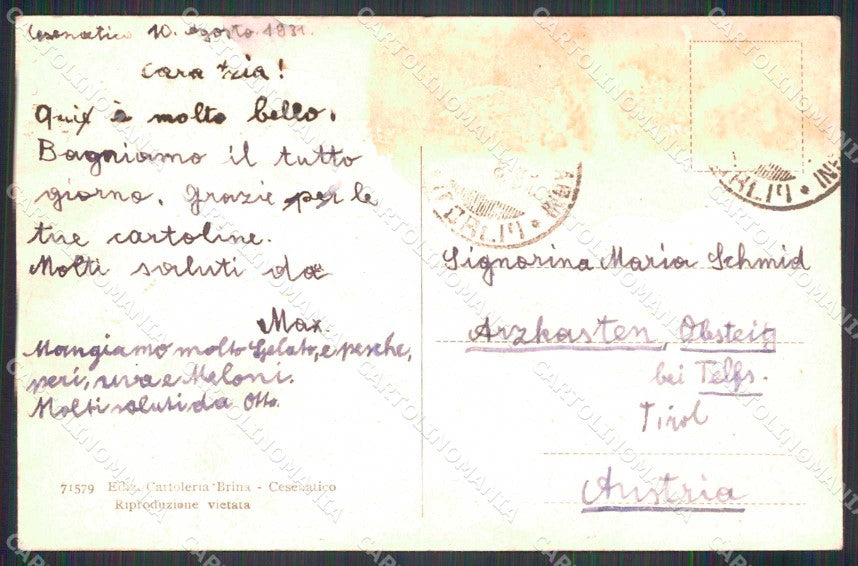 Cesenatico 10. agosto 1931.
cara zia!
Qui è molto bello.
Bagniamo il tutto
giorno. Grazie per le
tue cartoline.
Molti saluti da
Max.
Mangiamo molto Gelato, e pesche,
peri, uva e Meloni.
Molti saluti da Otto.
71579 Ediz. Cartoleria Brina - Cesenatico
Riproduzione vietata
Signorina Maria Schmid
Arzkasten, Obsteig
bei Telfs.
Tirol
Austria
CARTOLINOMANIA